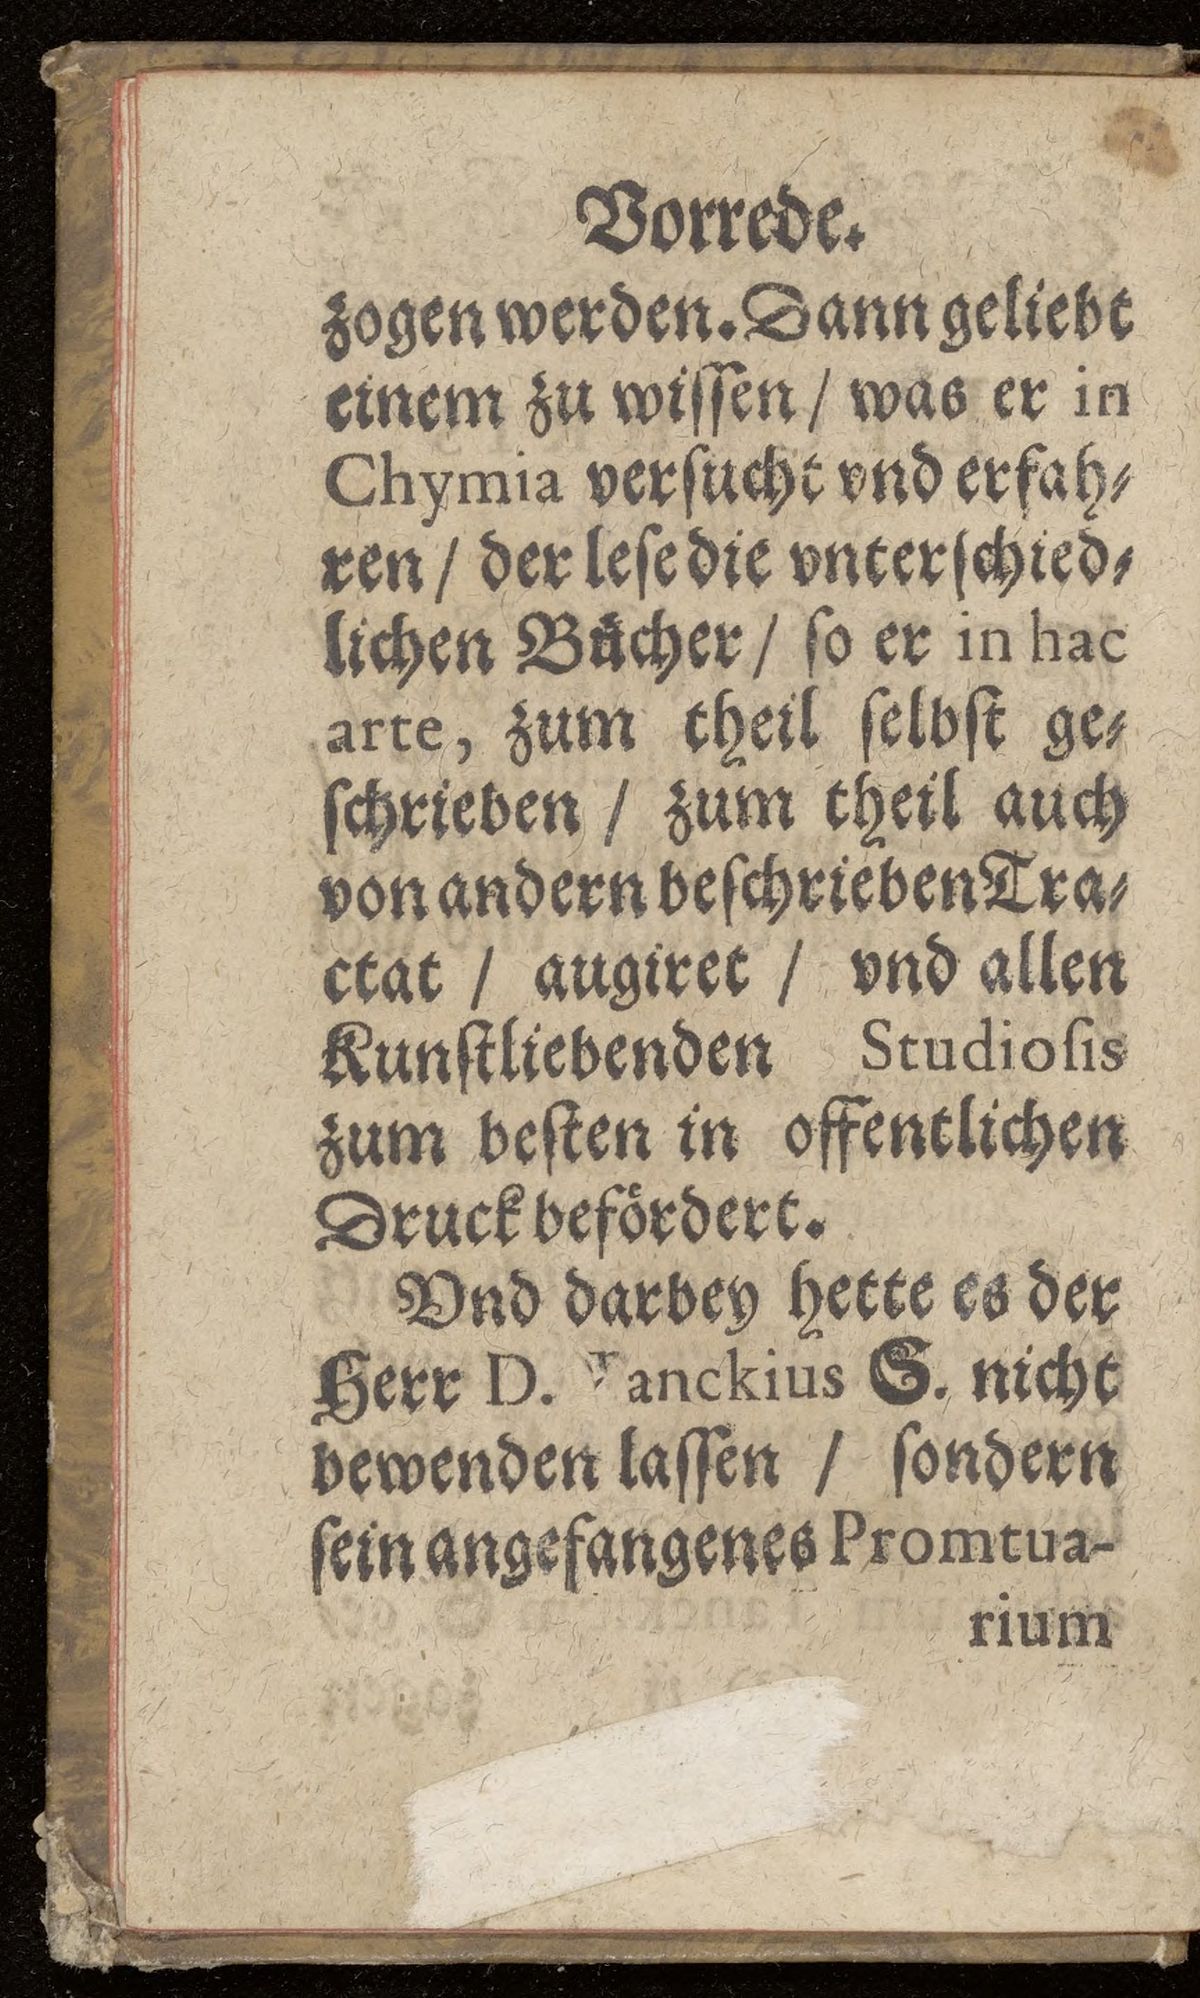 Vorrede.
zogen werden. Dann geliebt
einem zu wiſſen / was er in
Chymia verſucht vnd erfah⸗
ren / der leſe die vnterſchied⸗
lichen Buͤcher / ſo er in hac
arte, zum theil ſelbſt ge⸗
ſchrieben / zum theil auch
von andern beſchrieben Tra⸗
ctat / augiret / vnd allen
Kunſtliebenden Studioſis
zum beſten in offentlichen
Druck befoͤrdert.
Vnd darbey hette es der
Herr D. Tanckius S. nicht
bewenden laſſen / ſondern
ſein angefangenes Promtua-
rium